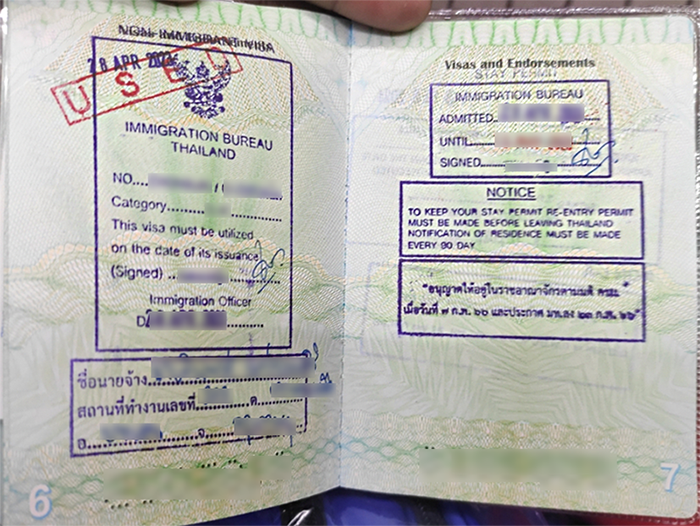 NON-IMMIGRANT VISA
28 APR
USED
IMMIGRATION BUREAU
THAILAND
NO.... /
Category..........
This visa must be utilized
on the date of its issuance
(Signed) ..
Immigration Officer
ชื่อนายจ้าง
สถานที่ทำงานเลขที่ ต.
อ. จ.
6
Visas and Endorsements
STAY PERMIT
IMMIGRATION BUREAU
ADMITTED
UNTIL
SIGNED
NOTICE
TO KEEP YOUR STAY PERMIT RE-ENTRY PERMIT
MUST BE MADE BEFORE LEAVING THAILAND
NOTIFICATION OF RESIDENCE MUST BE MADE
EVERY 90 DAY
"อนุญาตให้อยู่ในราชอาณาจักรตามมติ ครม.
เมื่อวันที่ ๗ ก.พ. ๖๖ และประกาศ มท.ลง ๒๓ ก.พ. ๖๖"
7